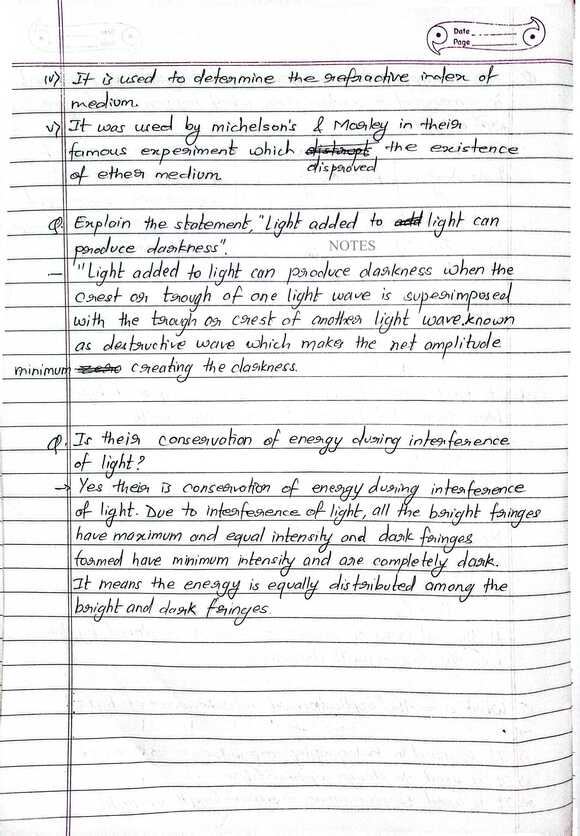 Date
Page
iv) It is used to determine the refractive index of
medium.
v) It was used by michelson's & Morley in their
famous experiment which the existence
disproved
of ether medium
Q. Explain the statement, "Light added to add light can
produce darkness".
NOTES
— "Light added to light can produce darkness when the
crest or trough of one light wave is superimposed
with the trough or crest of another light wave.known
as destructive wave which makes the net amplitude
minimum zero creating the darkness.
Q. Is their conservation of energy during interference
of light?
→ Yes their is conservation of energy during interference
of light. Due to interference of light, all the bright fringes
have maximum and equal intensity and dark fringes
formed have minimum intensity and are completely dark.
It means the energy is equally distributed among the
bright and dark fringes